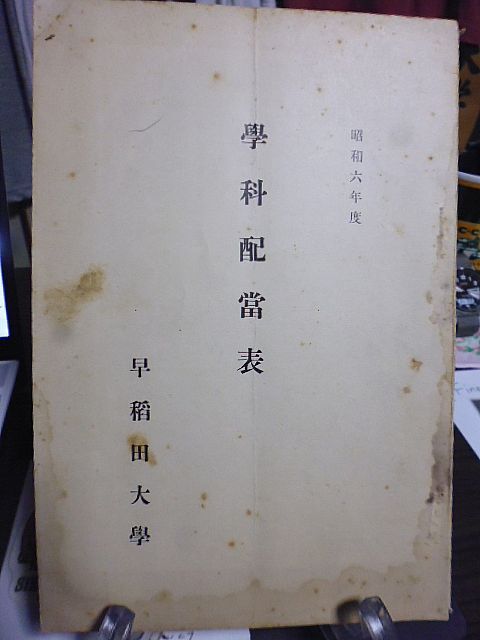 昭和六年度
學科配當表
早稻田大學